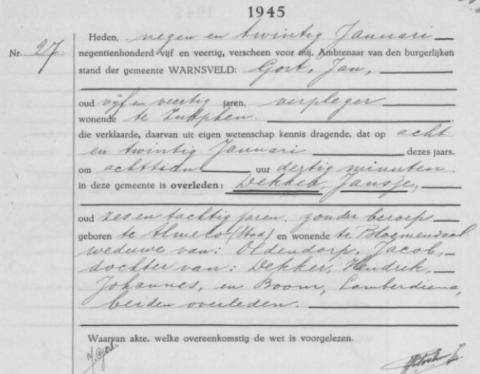 1945
Nr. 27
Heden, negen en twintig Januari
negentienhonderd vijf en veertig, verscheen voor mij, Ambtenaar van den burgerlijken
stand der gemeente WARNSVELD: Gort, Jan,
oud vijf en veertig jaren, verpleger
wonende te Zutphen
die verklaarde, daarvan uit eigen wetenschap kennis dragende, dat op acht
en twintig Januari dezes jaars.
om achttien uur dertig minuten
in deze gemeente is overleden: Dekker, Jansje,
oud zes en tachtig jaren. zonder beroep
geboren te Almelo (Stad) en wonende te Bloemendaal
weduwe van: Oldendorp, Jacob,
dochter van: Dekker, Hendrik,
Johannes, en Boom, Lamberdiena,
beiden overleden.
Waarvan akte, welke overeenkomstig de wet is voorgelezen.
J. Gort.